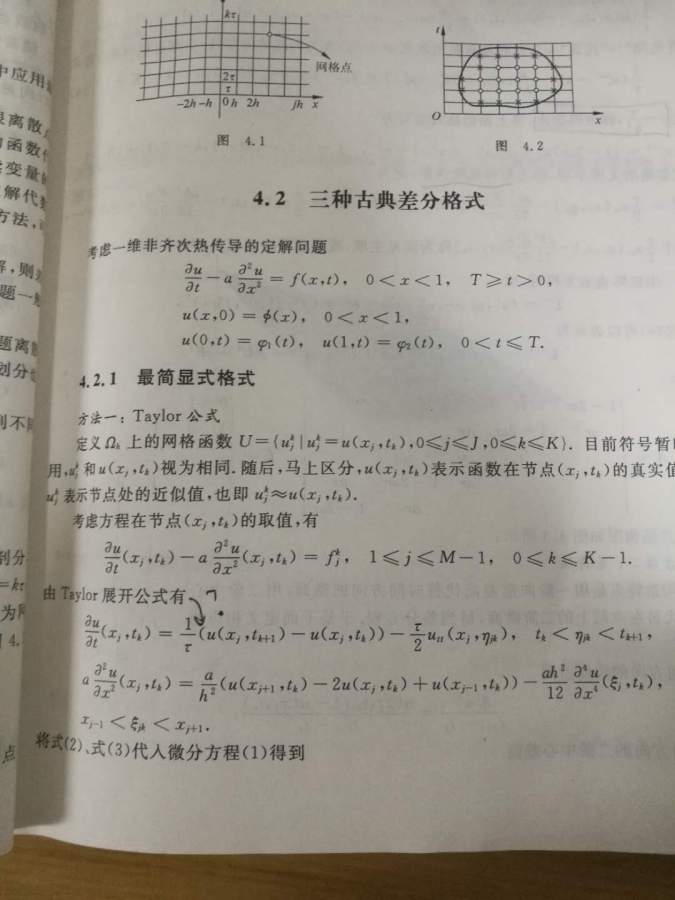 kτ
网格点
2τ
τ
-2h -h 0 h 2h jh x
t
O x
图 4.1
图 4.2
中应用
离散
函数
变量
解代
方法,
解,则
题一
题离
划分
不同
剖分
=kτ
为
4.
点
4.2 三种古典差分格式
考虑一维非齐次热传导的定解问题
∂u/∂t − a ∂²u/∂x² = f(x,t), 0<x<1, T⩾t>0,
u(x,0) = ϕ(x), 0<x<1,
u(0,t) = φ₁(t), u(1,t) = φ₂(t), 0<t⩽T.
4.2.1 最简显式格式
方法一:Taylor 公式
定义 Ωₕ 上的网格函数 U={uⱼᵏ|uⱼᵏ=u(xⱼ,tₖ),0⩽j⩽J,0⩽k⩽K}. 目前符号暂
用,uⱼᵏ和u(xⱼ,tₖ)视为相同. 随后,马上区分,u(xⱼ,tₖ)表示函数在节点(xⱼ,tₖ)的真实值
uⱼᵏ表示节点处的近似值,也即 uⱼᵏ≈u(xⱼ,tₖ).
考虑方程在节点(xⱼ,tₖ)的取值,有
∂u/∂t(xⱼ,tₖ) − a ∂²u/∂x²(xⱼ,tₖ) = fⱼᵏ, 1⩽j⩽M−1, 0⩽k⩽K−1.
由 Taylor 展开公式有
∂u/∂t(xⱼ,tₖ) = 1/τ(u(xⱼ,tₖ₊₁) − u(xⱼ,tₖ)) − τ/2 uₜₜ(xⱼ,ηⱼₖ), tₖ<ηⱼₖ<tₖ₊₁,
a ∂²u/∂x²(xⱼ,tₖ) = a/h²(u(xⱼ₊₁,tₖ) − 2u(xⱼ,tₖ) + u(xⱼ₋₁,tₖ)) − ah²/12 ∂⁴u/∂x⁴(ξⱼ,tₖ),
xⱼ₋₁<ξⱼₖ<xⱼ₊₁.
将式(2)、式(3)代入微分方程(1)得到